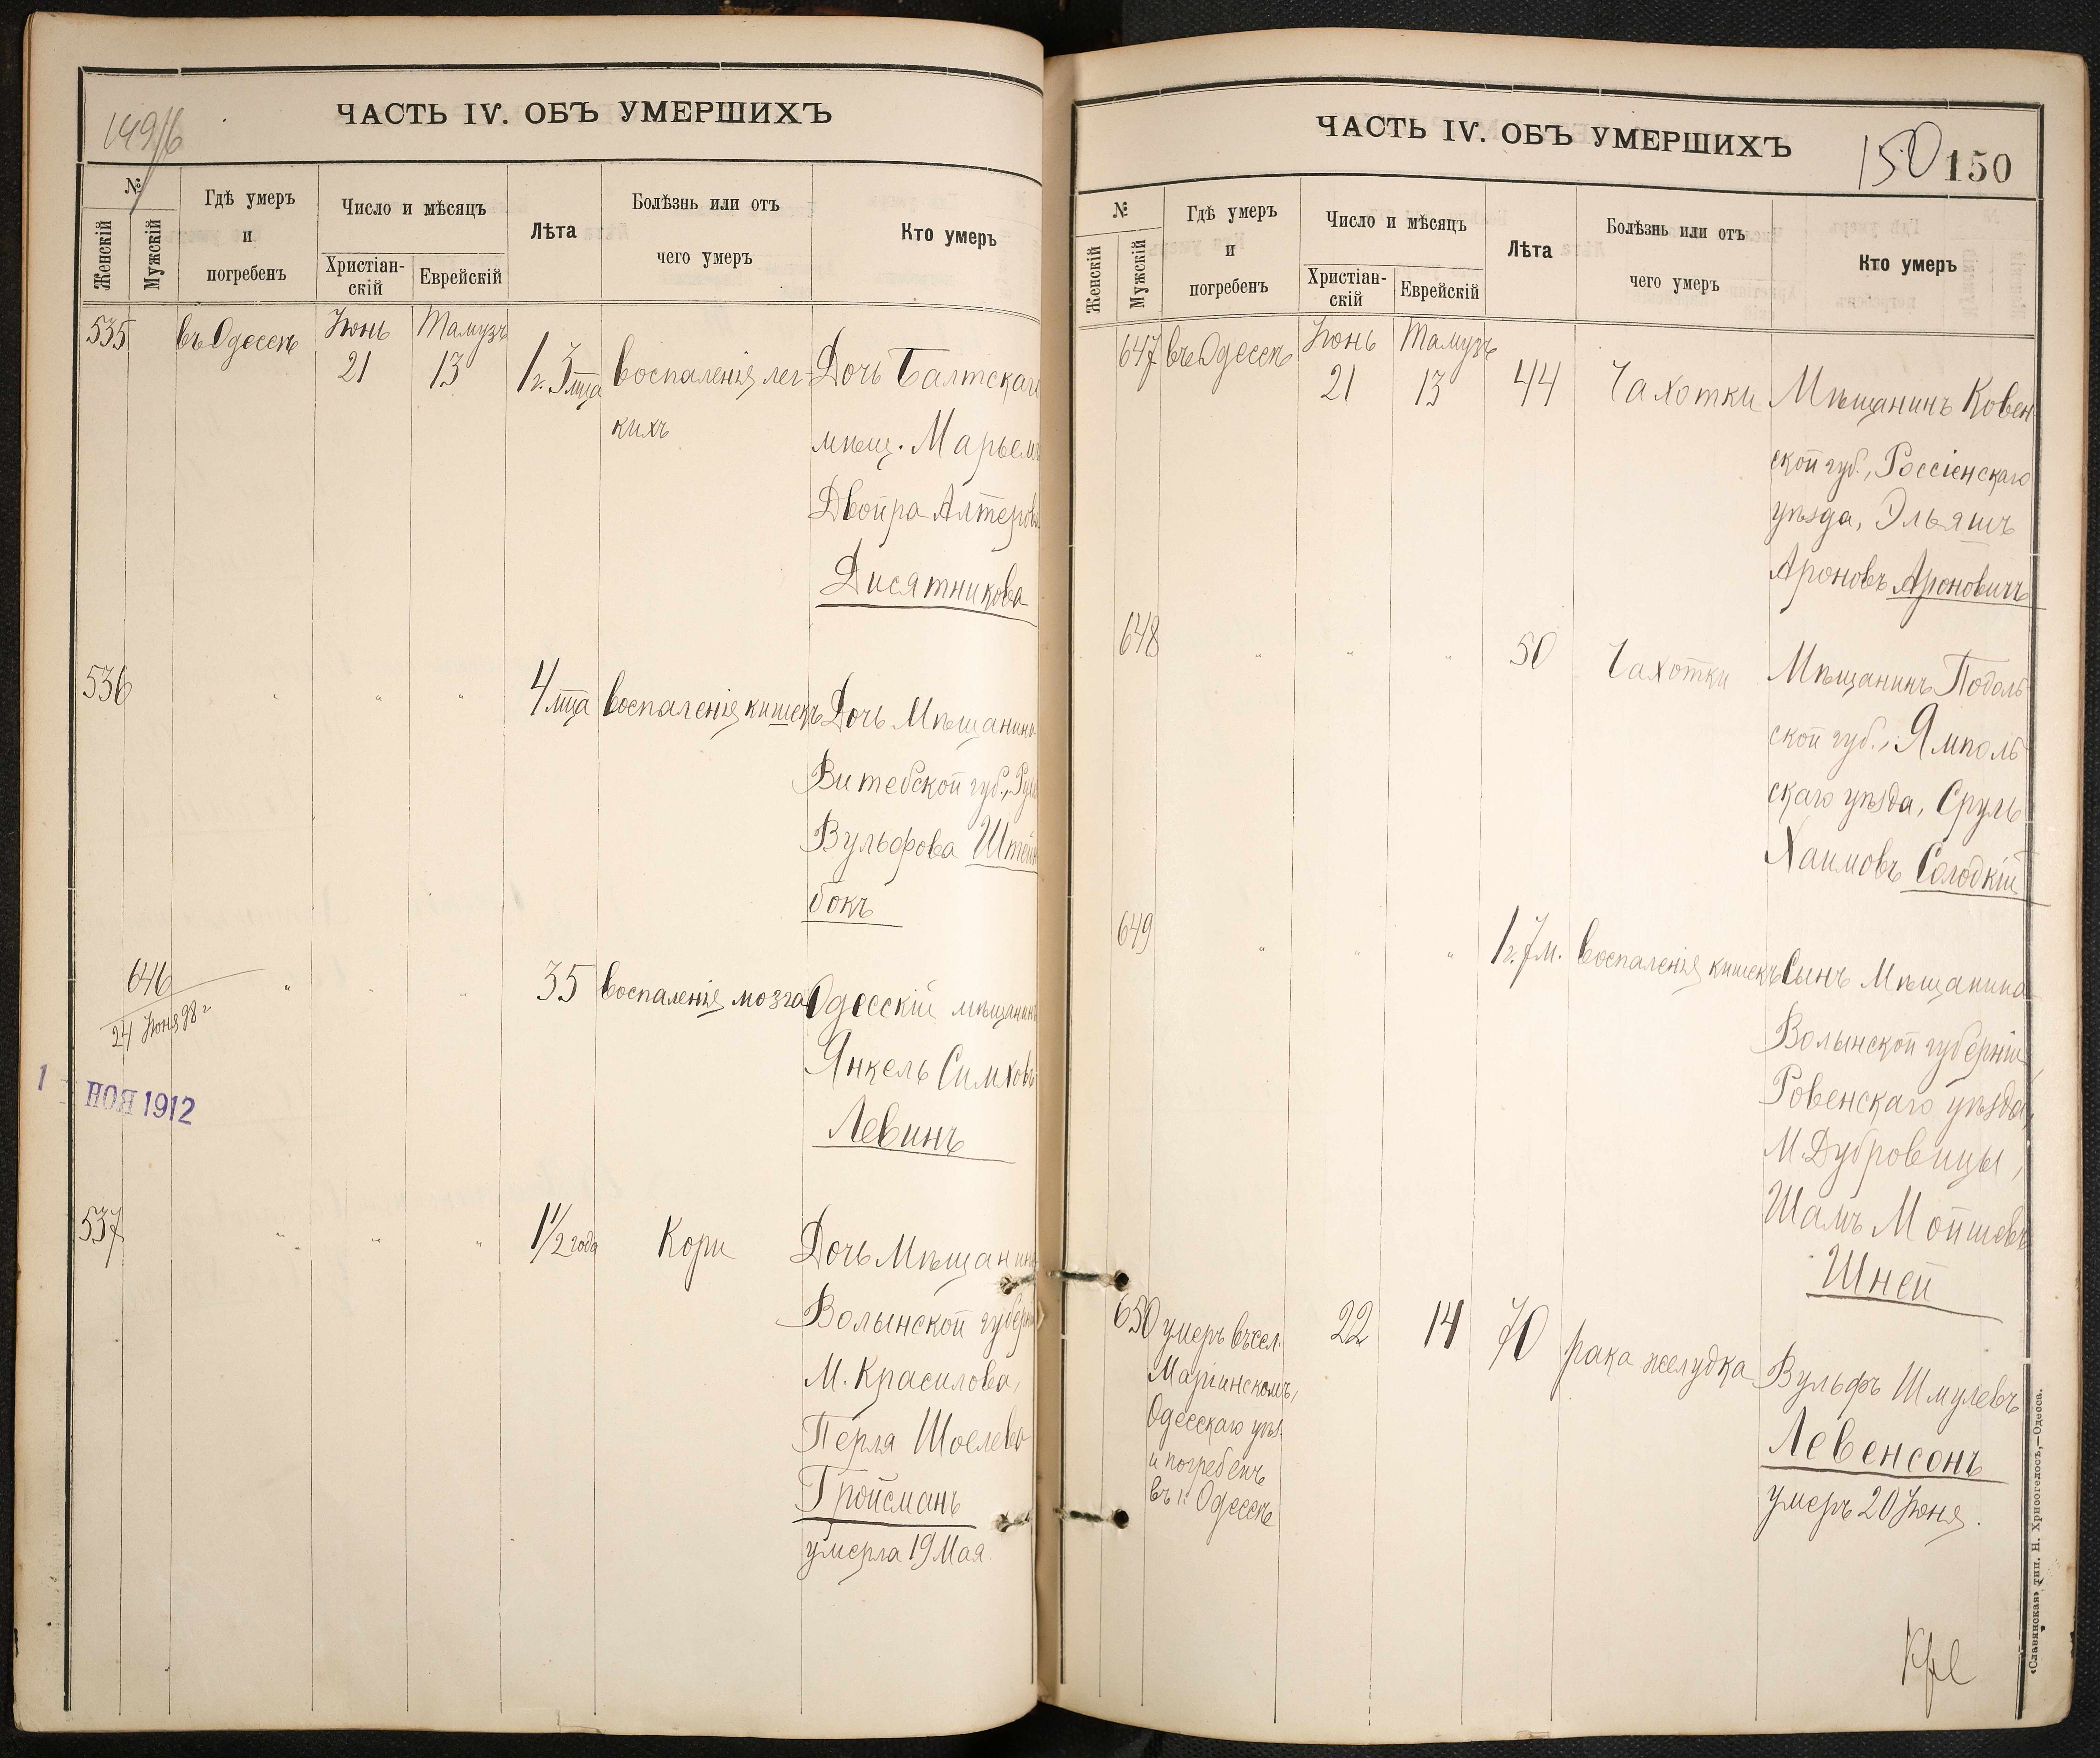 149/б
ЧАСТЬ IV. ОБЪ УМЕРШИХЪ
№
Женскій
Мужскій
Гдѣ умеръ
и
погребенъ
Число и мѣсяцъ
Христіан-
скій
Еврейскій
Лѣта
Болѣзнь или отъ
чего умеръ
Кто умеръ
535
въ Одессѣ
Іюнь
21
Тамузъ
13
1 г. 3 мца
воспаленія лег-
кихъ
Дочь Балтскаго
мѣщ. Марьемъ
Двойра Алтерова
Дисятникова
536
" " "
4 мца
воспаленія кишекъ
Дочь Мѣщанина
Витебской губ.,
Вульфова Штейн
бокъ
646
24 Іюня 98 г
" " "
35
воспаленія мозга
Одесскій мѣщанинъ
Янкель Симховъ
Левинъ
1 - НОЯ 1912
537
" " "
1 1/2 года
Кори
Дочь Мѣщанина
Волынской губерн
М. Красилова,
Перля Шоелева
Гройсманъ
умерла 19 Мая.
ЧАСТЬ IV. ОБЪ УМЕРШИХЪ
150 150
№
Женскій
Мужскій
Гдѣ умеръ
и
погребенъ
Число и мѣсяцъ
Христіан-
скій
Еврейскій
Лѣта
Болѣзнь или отъ
чего умеръ
Кто умеръ
647
въ Одессѣ
Іюнь
21
Тамузъ
13
44
Чахотки
Мѣщанинъ Ковен
ской губ., Россіенскаго
уѣзда, Эльяшъ
Ароновъ Ароновичъ
648
" " "
50
Чахотки
Мѣщанинъ Подоль
ской губ., Ямполь
скаго уѣзда, Сруль
Хаимовъ Солодкій
649
" " "
1 г. 7 м.
воспаленія кишекъ
Сынъ Мѣщанина
Волынской губерніи,
Ровенскаго уѣзда,
М. Дубровицы,
Шамъ Мойшевъ
Шней
650
умеръ въ сел.
Маріинскомъ,
Одесскаго уѣз.
и погребенъ
въ г. Одессѣ
22
14
70
рака желудка
Вульфъ Шмулевъ
Левенсонъ
умеръ 20 Іюня.
«Славянская» тип. Н. Хрисогелосъ,—Одесса.